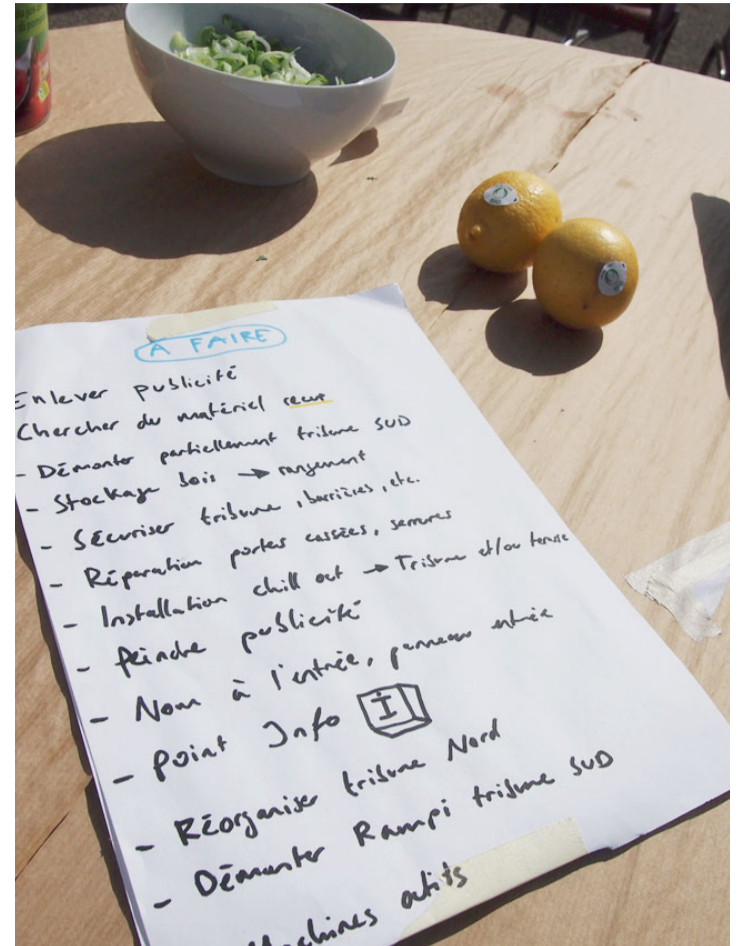 A FAIRE
Enlever publicité
Chercher du matériel recup
- Démonter partiellement tribune SUD
- Stockage bois → rangement
- Sécuriser tribune, barrières, etc.
- Réparation portes cassées, serrures
- Installation chill out → Tribune et/ou terrasse
- Peindre publicité
- Nom à l'entrée, panneau entrée
- Point Info I
- Réorganiser tribune Nord
- Démonter Rampi tribune SUD
Machines outils